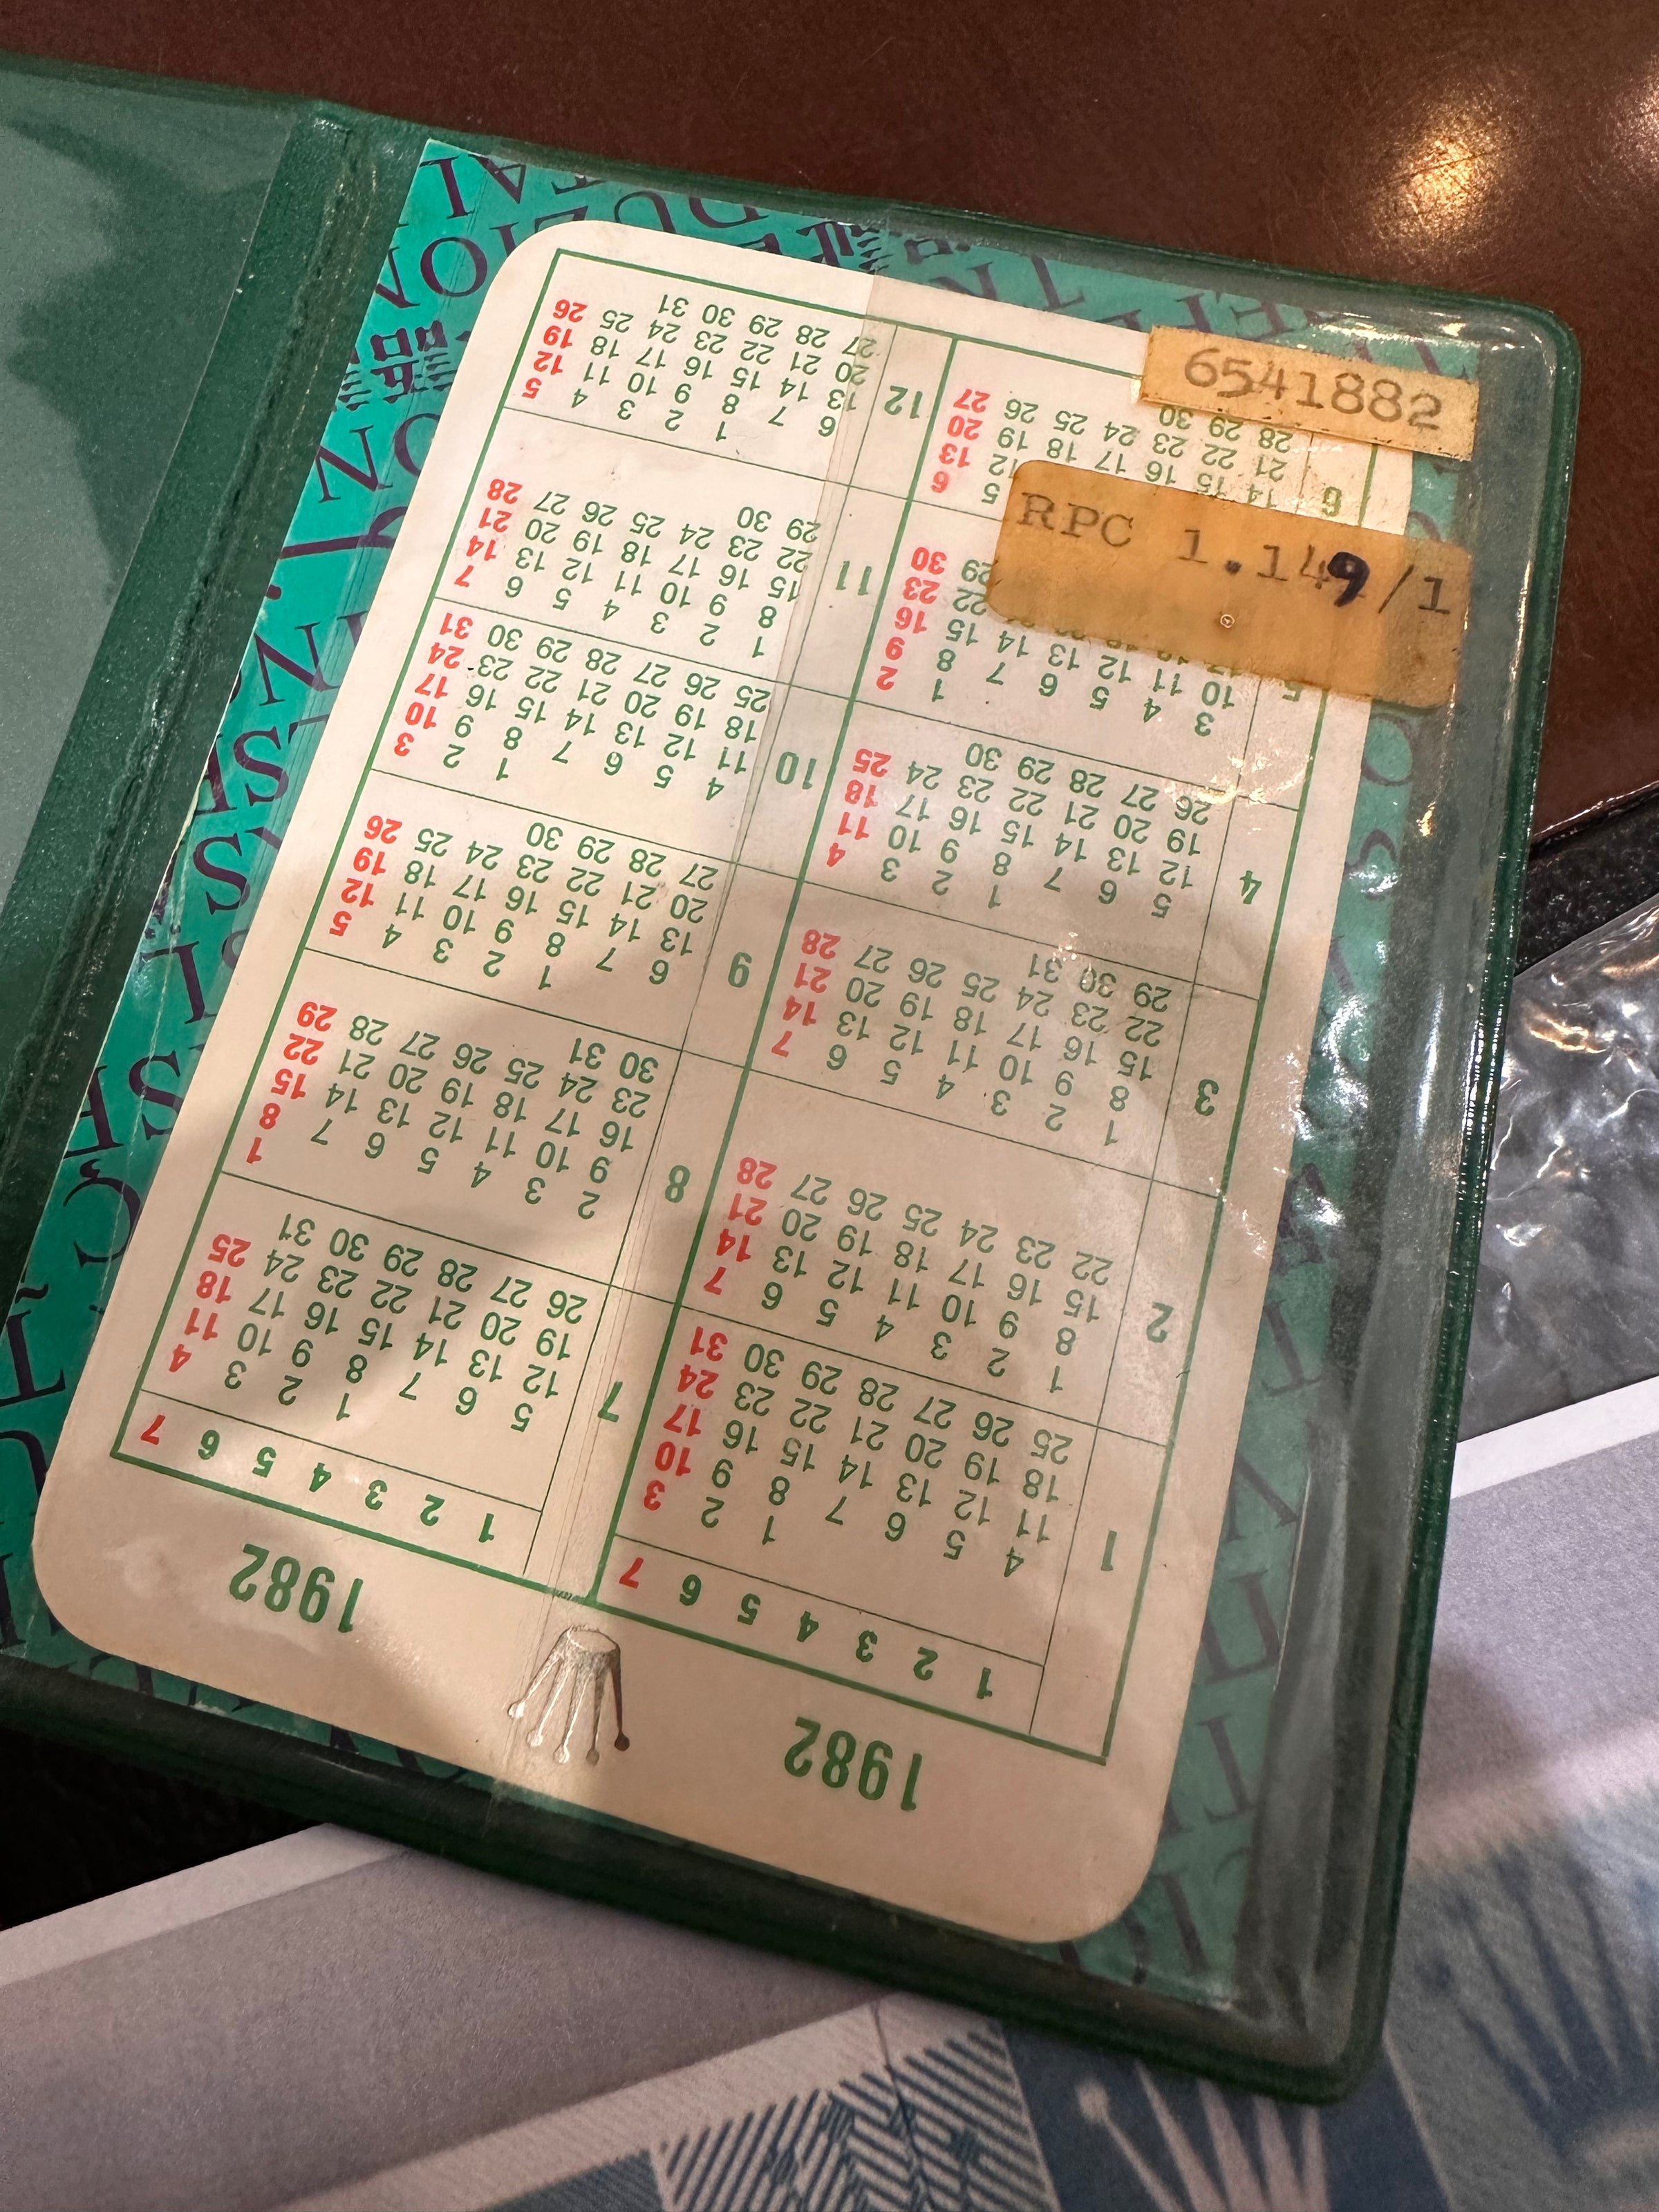 6541882
RPC 1.149/1
1982
1 2 3 4 5 6 7
1
1 2 3
4 5 6 7 8 9 10
11 12 13 14 15 16 17
18 19 20 21 22 23 24
25 26 27 28 29 30 31
2
1 2 3 4 5 6 7
8 9 10 11 12 13 14
15 16 17 18 19 20 21
22 23 24 25 26 27 28
3
1 2 3 4 5 6 7
8 9 10 11 12 13 14
15 16 17 18 19 20 21
22 23 24 25 26 27 28
29 30 31
4
1 2 3 4
5 6 7 8 9 10 11
12 13 14 15 16 17 18
19 20 21 22 23 24 25
26 27 28 29 30
5
1 2
3 4 5 6 7 8 9
10 11 12 13 14 15 16
22 23
29 30
6
5 6
12 13
14 15 16 17 18 19 20
21 22 23 24 25 26 27
28 29 30
1982
1 2 3 4 5 6 7
7
1 2 3 4
5 6 7 8 9 10 11
12 13 14 15 16 17 18
19 20 21 22 23 24 25
26 27 28 29 30 31
8
1
2 3 4 5 6 7 8
9 10 11 12 13 14 15
16 17 18 19 20 21 22
23 24 25 26 27 28 29
30 31
9
1 2 3 4 5
6 7 8 9 10 11 12
13 14 15 16 17 18 19
20 21 22 23 24 25 26
27 28 29 30
10
1 2 3
4 5 6 7 8 9 10
11 12 13 14 15 16 17
18 19 20 21 22 23 24
25 26 27 28 29 30 31
11
1 2 3 4 5 6 7
8 9 10 11 12 13 14
15 16 17 18 19 20 21
22 23 24 25 26 27 28
29 30
12
1 2 3 4 5
6 7 8 9 10 11 12
13 14 15 16 17 18 19
20 21 22 23 24 25 26
27 28 29 30 31